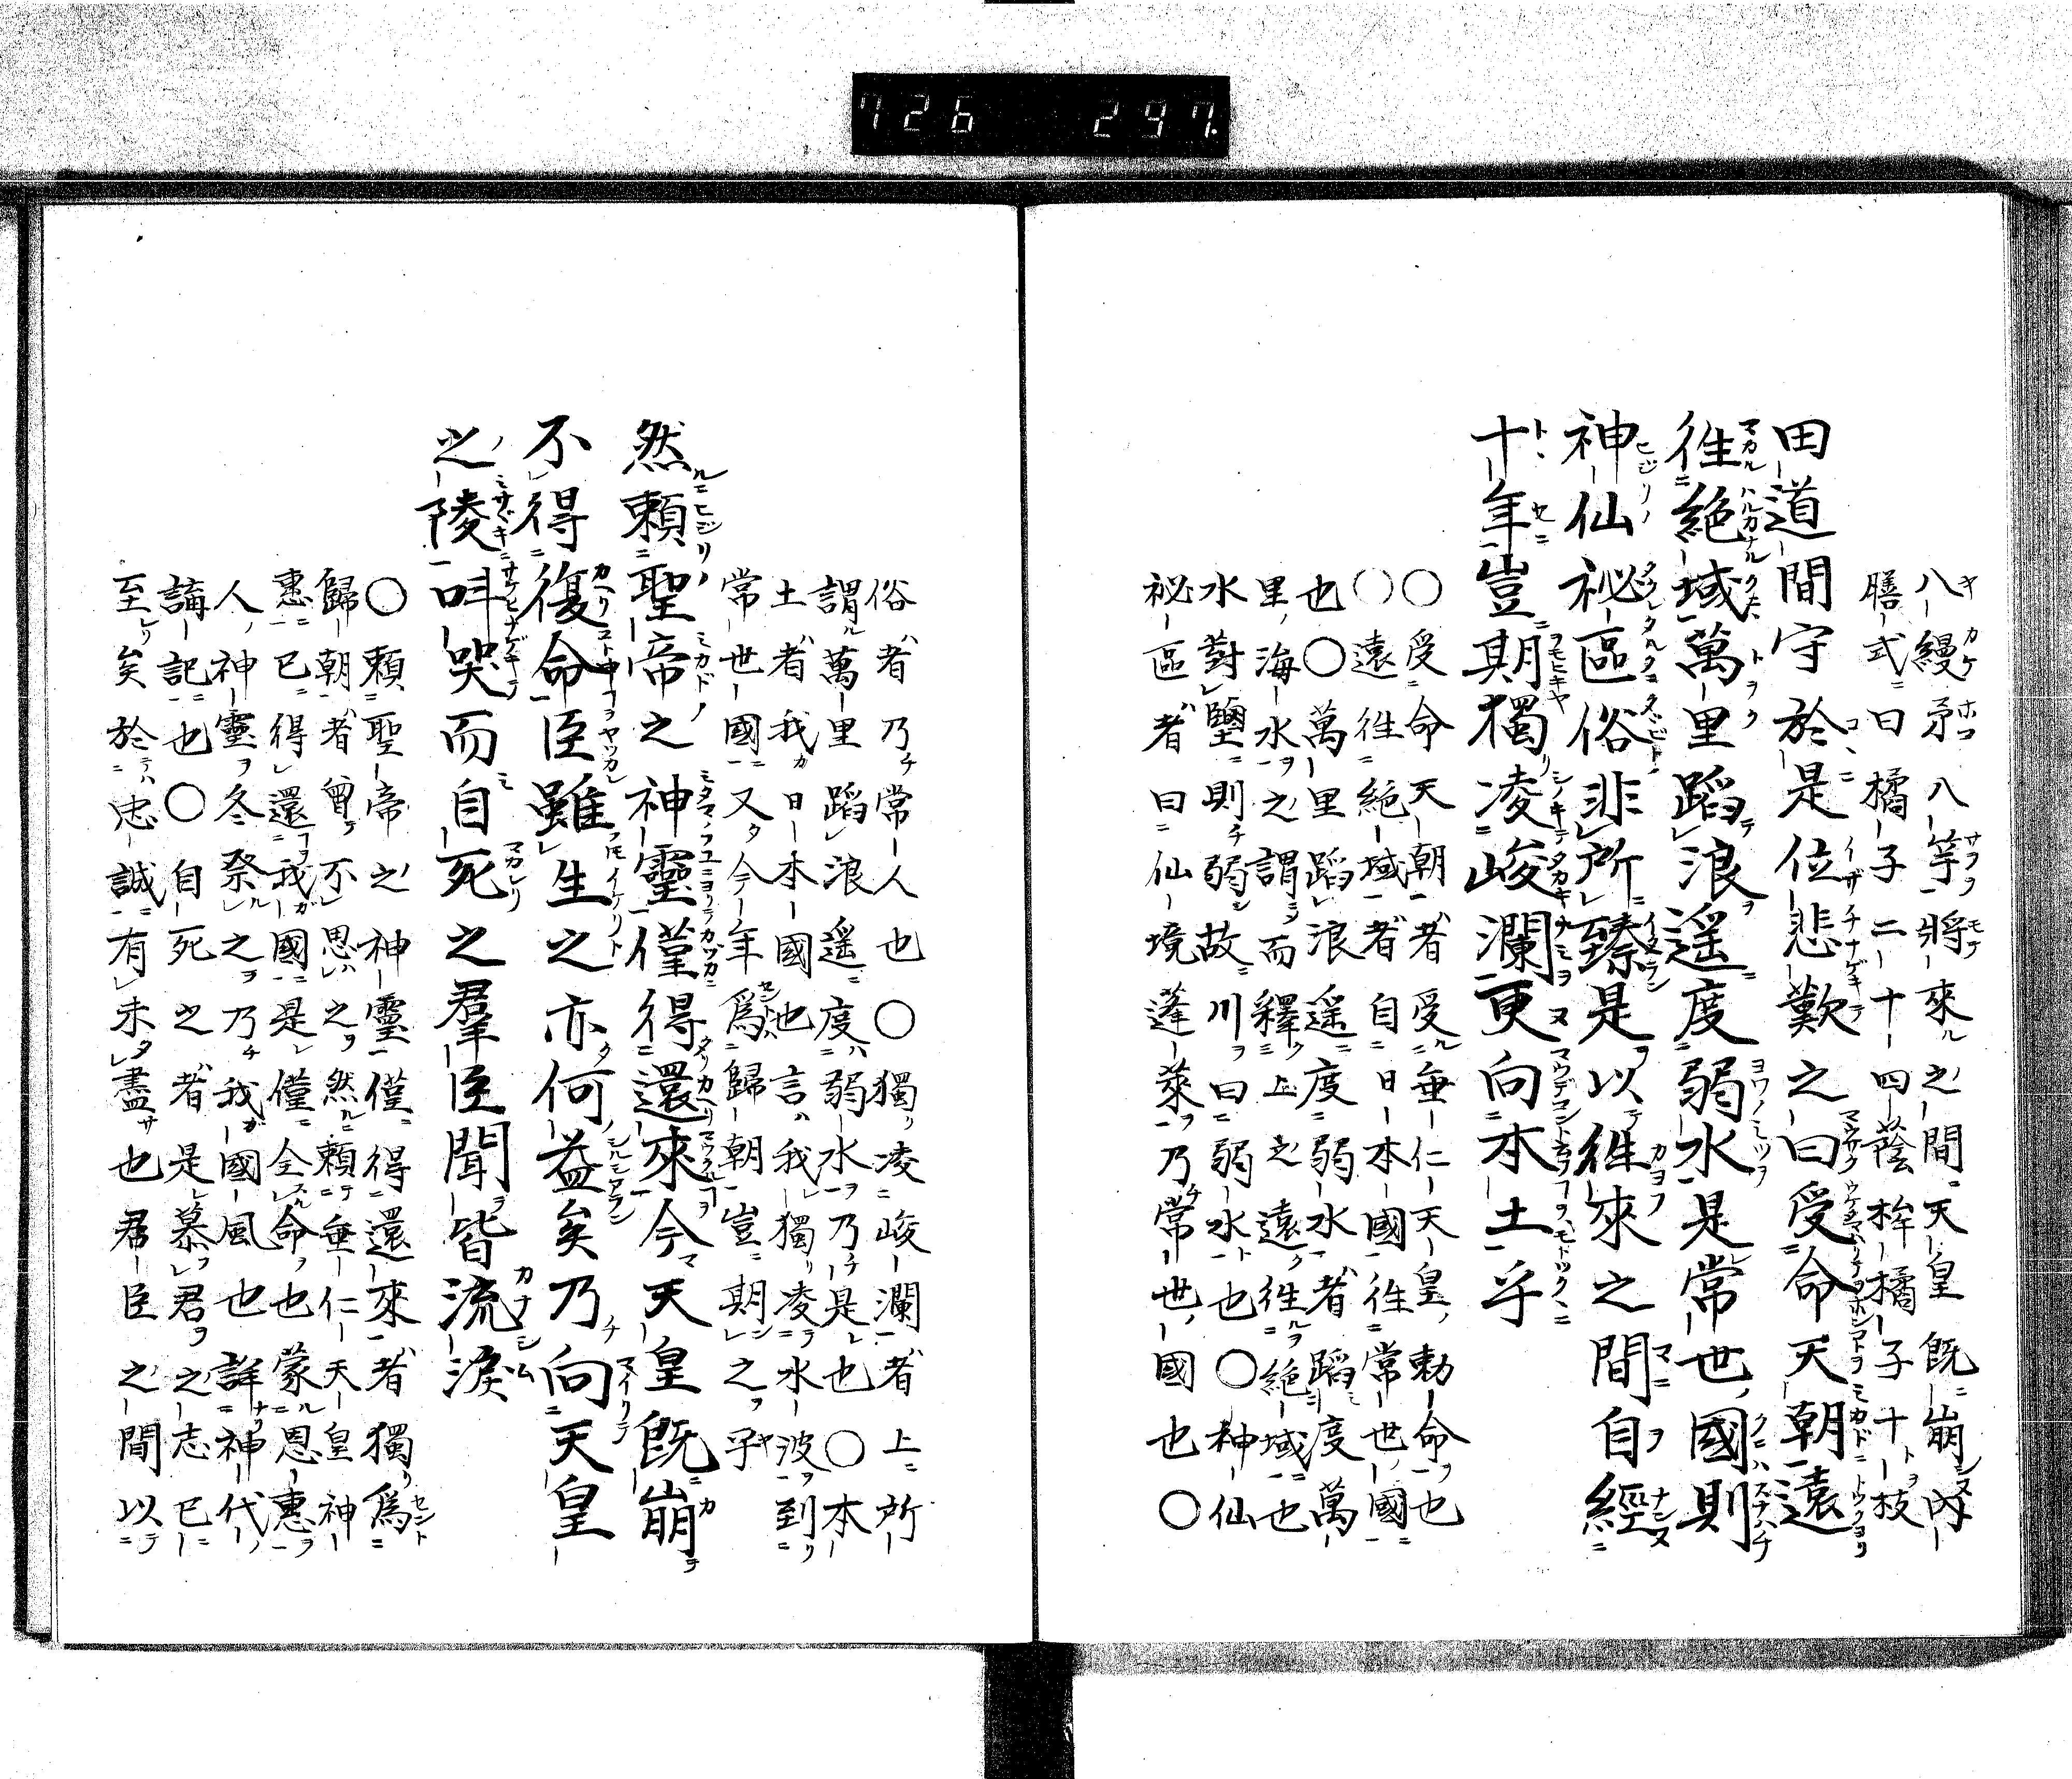 726 297.
八縵矛八竿將來之間天皇既崩内
膳式曰橘子二十四蔭桙橘子十枝
田道間守於是位悲歎之曰受命天朝遠
徃絶域萬里蹈浪遥度弱水是常世國則
神仙祕區俗非所臻是以徃來之間自經
十年豈期獨凌峻瀾更向本土乎
○受命天朝者受垂仁天皇勅命也
○遠徃絶域者自日本國徃常世國
也○萬里蹈浪遥度弱水者蹈度萬
里海水之謂而釋上之遠徃絶域也
水對鹽則弱故川曰弱水也○神仙
祕區者曰仙境蓬萊乃常世國也○
俗者乃常人也○獨凌峻瀾者上所
謂萬里蹈浪遥度弱水乃是也○本
土者我日本國也言我獨凌水波到
常世國又今年爲歸朝豈期之乎
然頼聖帝之神靈僅得還來今天皇既崩
不得復命臣雖生之亦何益矣乃向天皇
之陵呌哭而自死之羣臣聞皆流淚
○頼聖帝之神靈僅得還來者獨爲
歸朝者曾不思之然頼垂仁天皇神
惠已得還我國是僅全命也蒙恩惠
人神靈冬祭之乃我國風也詳神代
講記也○自死之者是慕君之志已
至矣於忠誠有未盡也君臣之間以